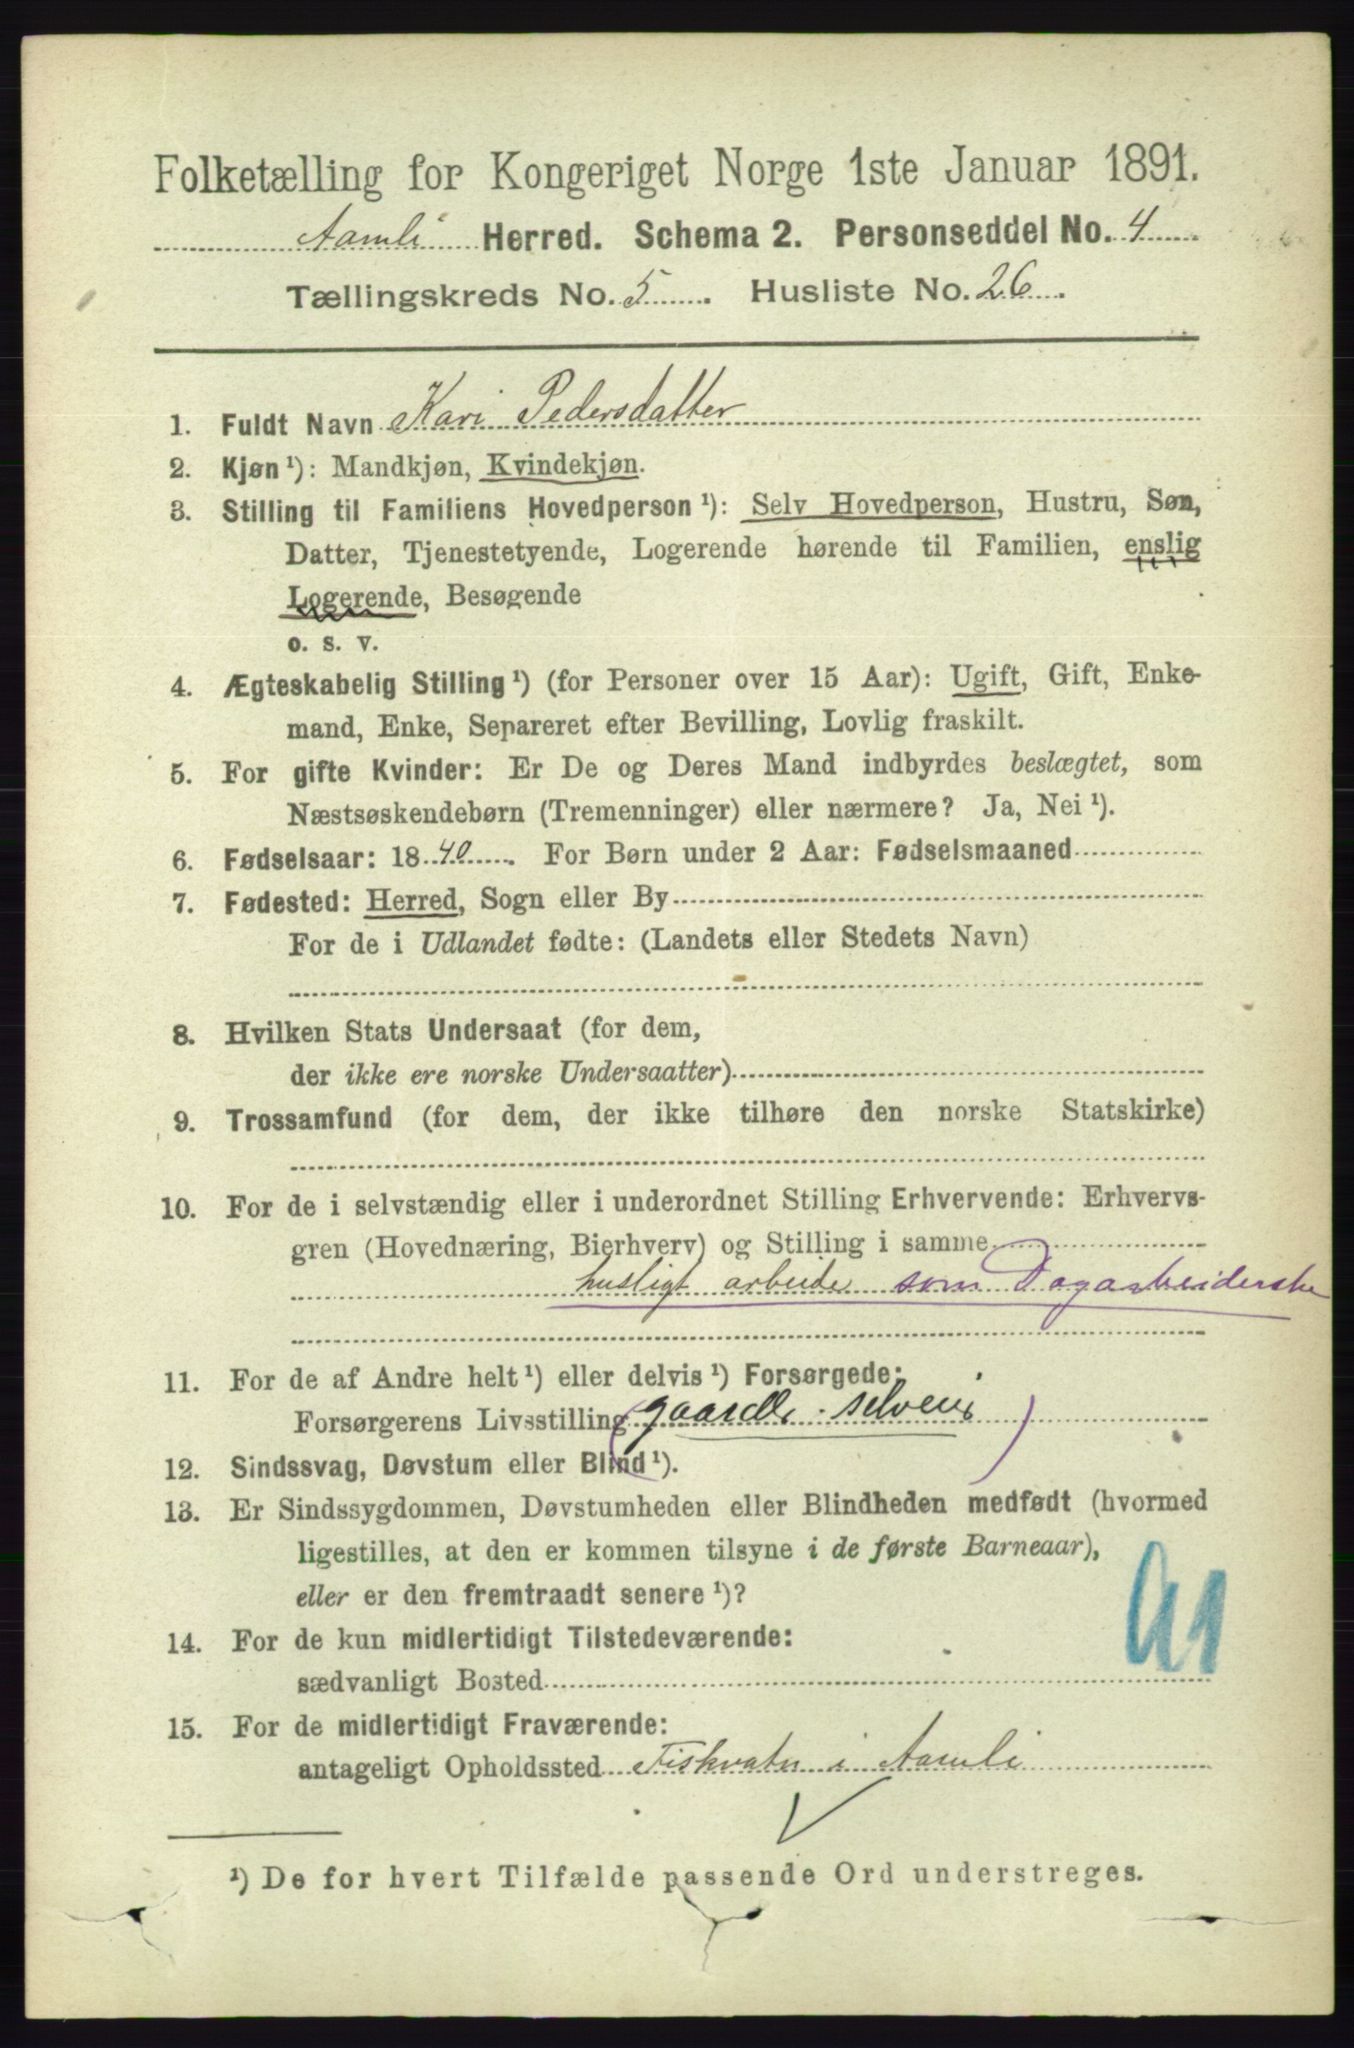 Folketælling for Kongeriget Norge 1ste Januar 1891.
Aamli Herred. Schema 2. Personseddel No. 4
Tællingskreds No. 5. Husliste No. 26.
1. Fuldt Navn Kari Pedersdatter
2. Kjøn ¹): Mandkjøn, Kvindekjøn.
3. Stilling til Familiens Hovedperson ¹): Selv Hovedperson, Hustru, Søn,
Datter, Tjenestetyende, Logerende hørende til Familien, enslig
Logerende, Besøgende
o. s. v.
4. Ægteskabelig Stilling ¹) (for Personer over 15 Aar): Ugift, Gift, Enke-
mand, Enke, Separeret efter Bevilling, Lovlig fraskilt.
5. For gifte Kvinder: Er De og Deres Mand indbyrdes beslægtet, som
Næstsøskendebørn (Tremenninger) eller nærmere? Ja, Nei ¹).
6. Fødselsaar: 1840. For Børn under 2 Aar: Fødselsmaaned
7. Fødested: Herred, Sogn eller By
For de i Udlandet fødte: (Landets eller Stedets Navn)
8. Hvilken Stats Undersaat (for dem,
der ikke ere norske Undersaatter)
9. Trossamfund (for dem, der ikke tilhøre den norske Statskirke)
10. For de i selvstændig eller i underordnet Stilling Erhvervende: Erhvervs-
gren (Hovednæring, Bierhverv) og Stilling i samme
husligt arbeide som Dagarbeiderske
11. For de af Andre helt ¹) eller delvis ¹) Forsørgede:
Forsørgerens Livsstilling (gaardbr. selvei)
12. Sindssvag, Døvstum eller Blind ¹).
13. Er Sindssygdommen, Døvstumheden eller Blindheden medfødt (hvormed
ligestilles, at den er kommen tilsyne i de første Barneaar),
eller er den fremtraadt senere ¹)?
14. For de kun midlertidigt Tilstedeværende:
sædvanligt Bosted
15. For de midlertidigt Fraværende:
antageligt Opholdssted Fiskvatn i Aamli
¹) De for hvert Tilfælde passende Ord understreges.